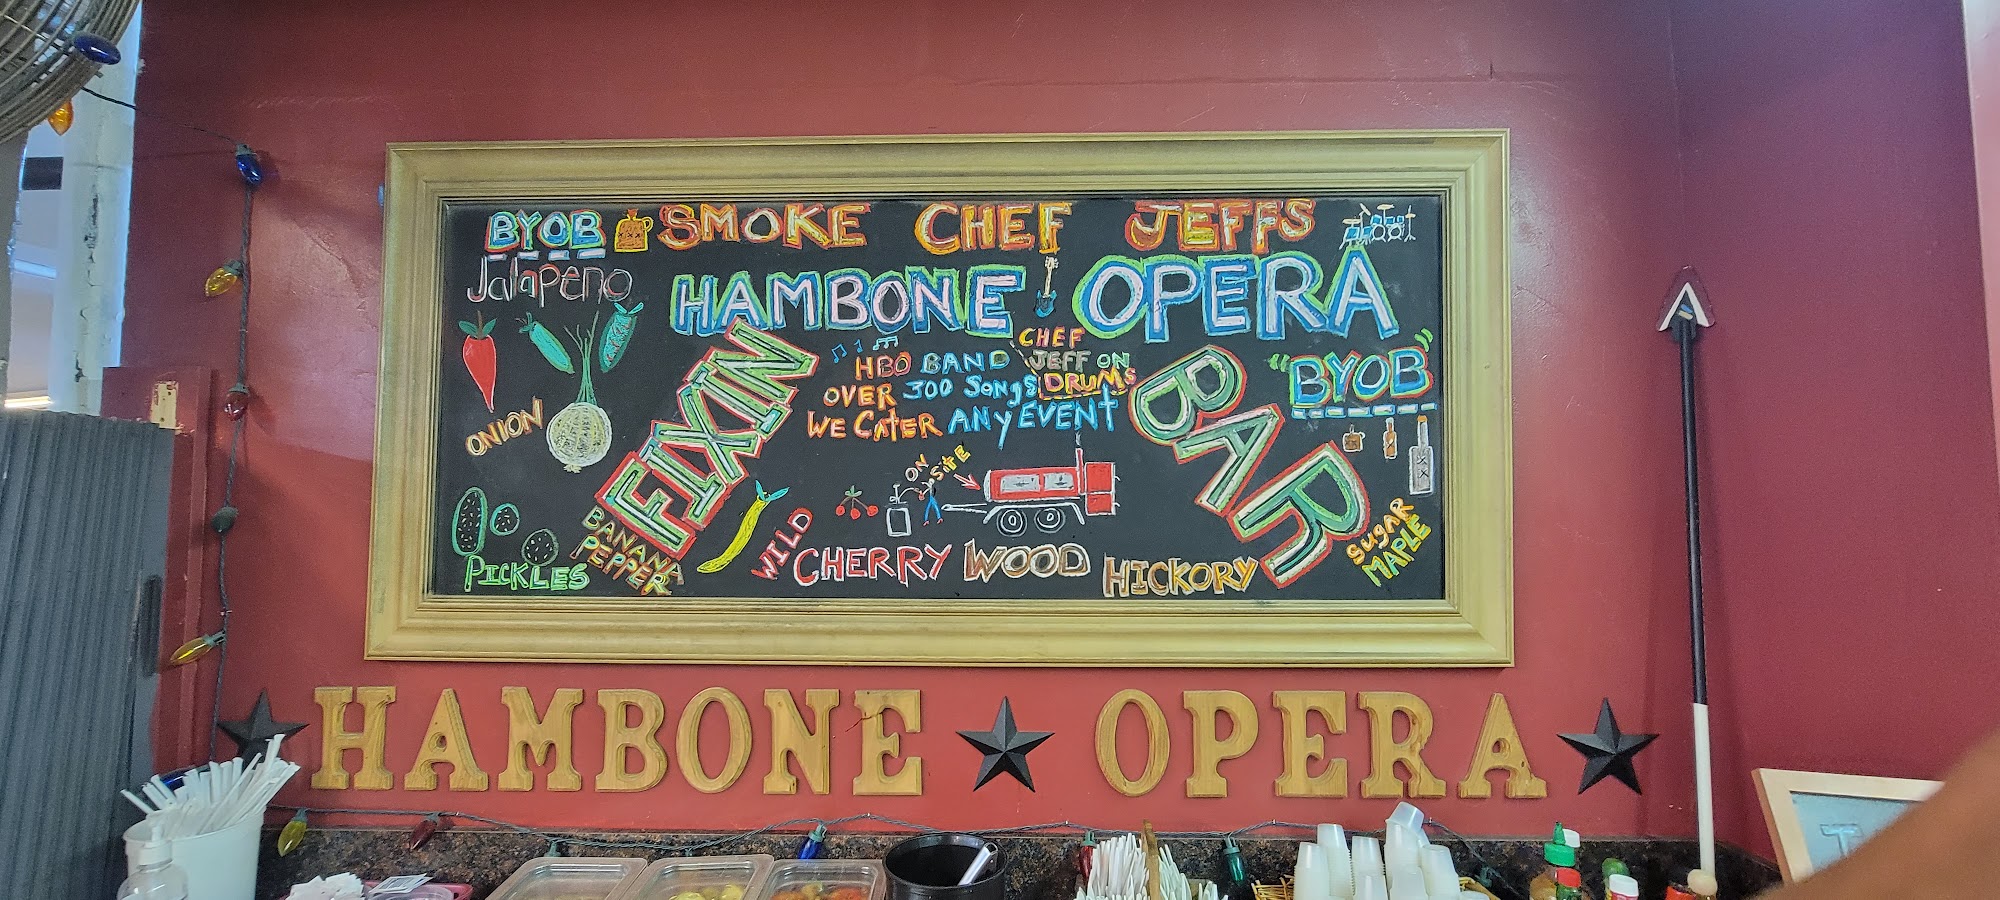 BYOB SMOKE CHEF JEFFS
HAMBONE OPERA
Jalapeno
ONION
PICKLES
BANANA
PEPPER
FIXIN
BAR
CHEF
HBO BAND JEFF ON
OVER 300 Songs DRUMS
WE CATER ANY EVENT
ON
SITE
WILD CHERRY WOOD HICKORY
"BYOB"
SUGAR
MAPLE
HAMBONE OPERA